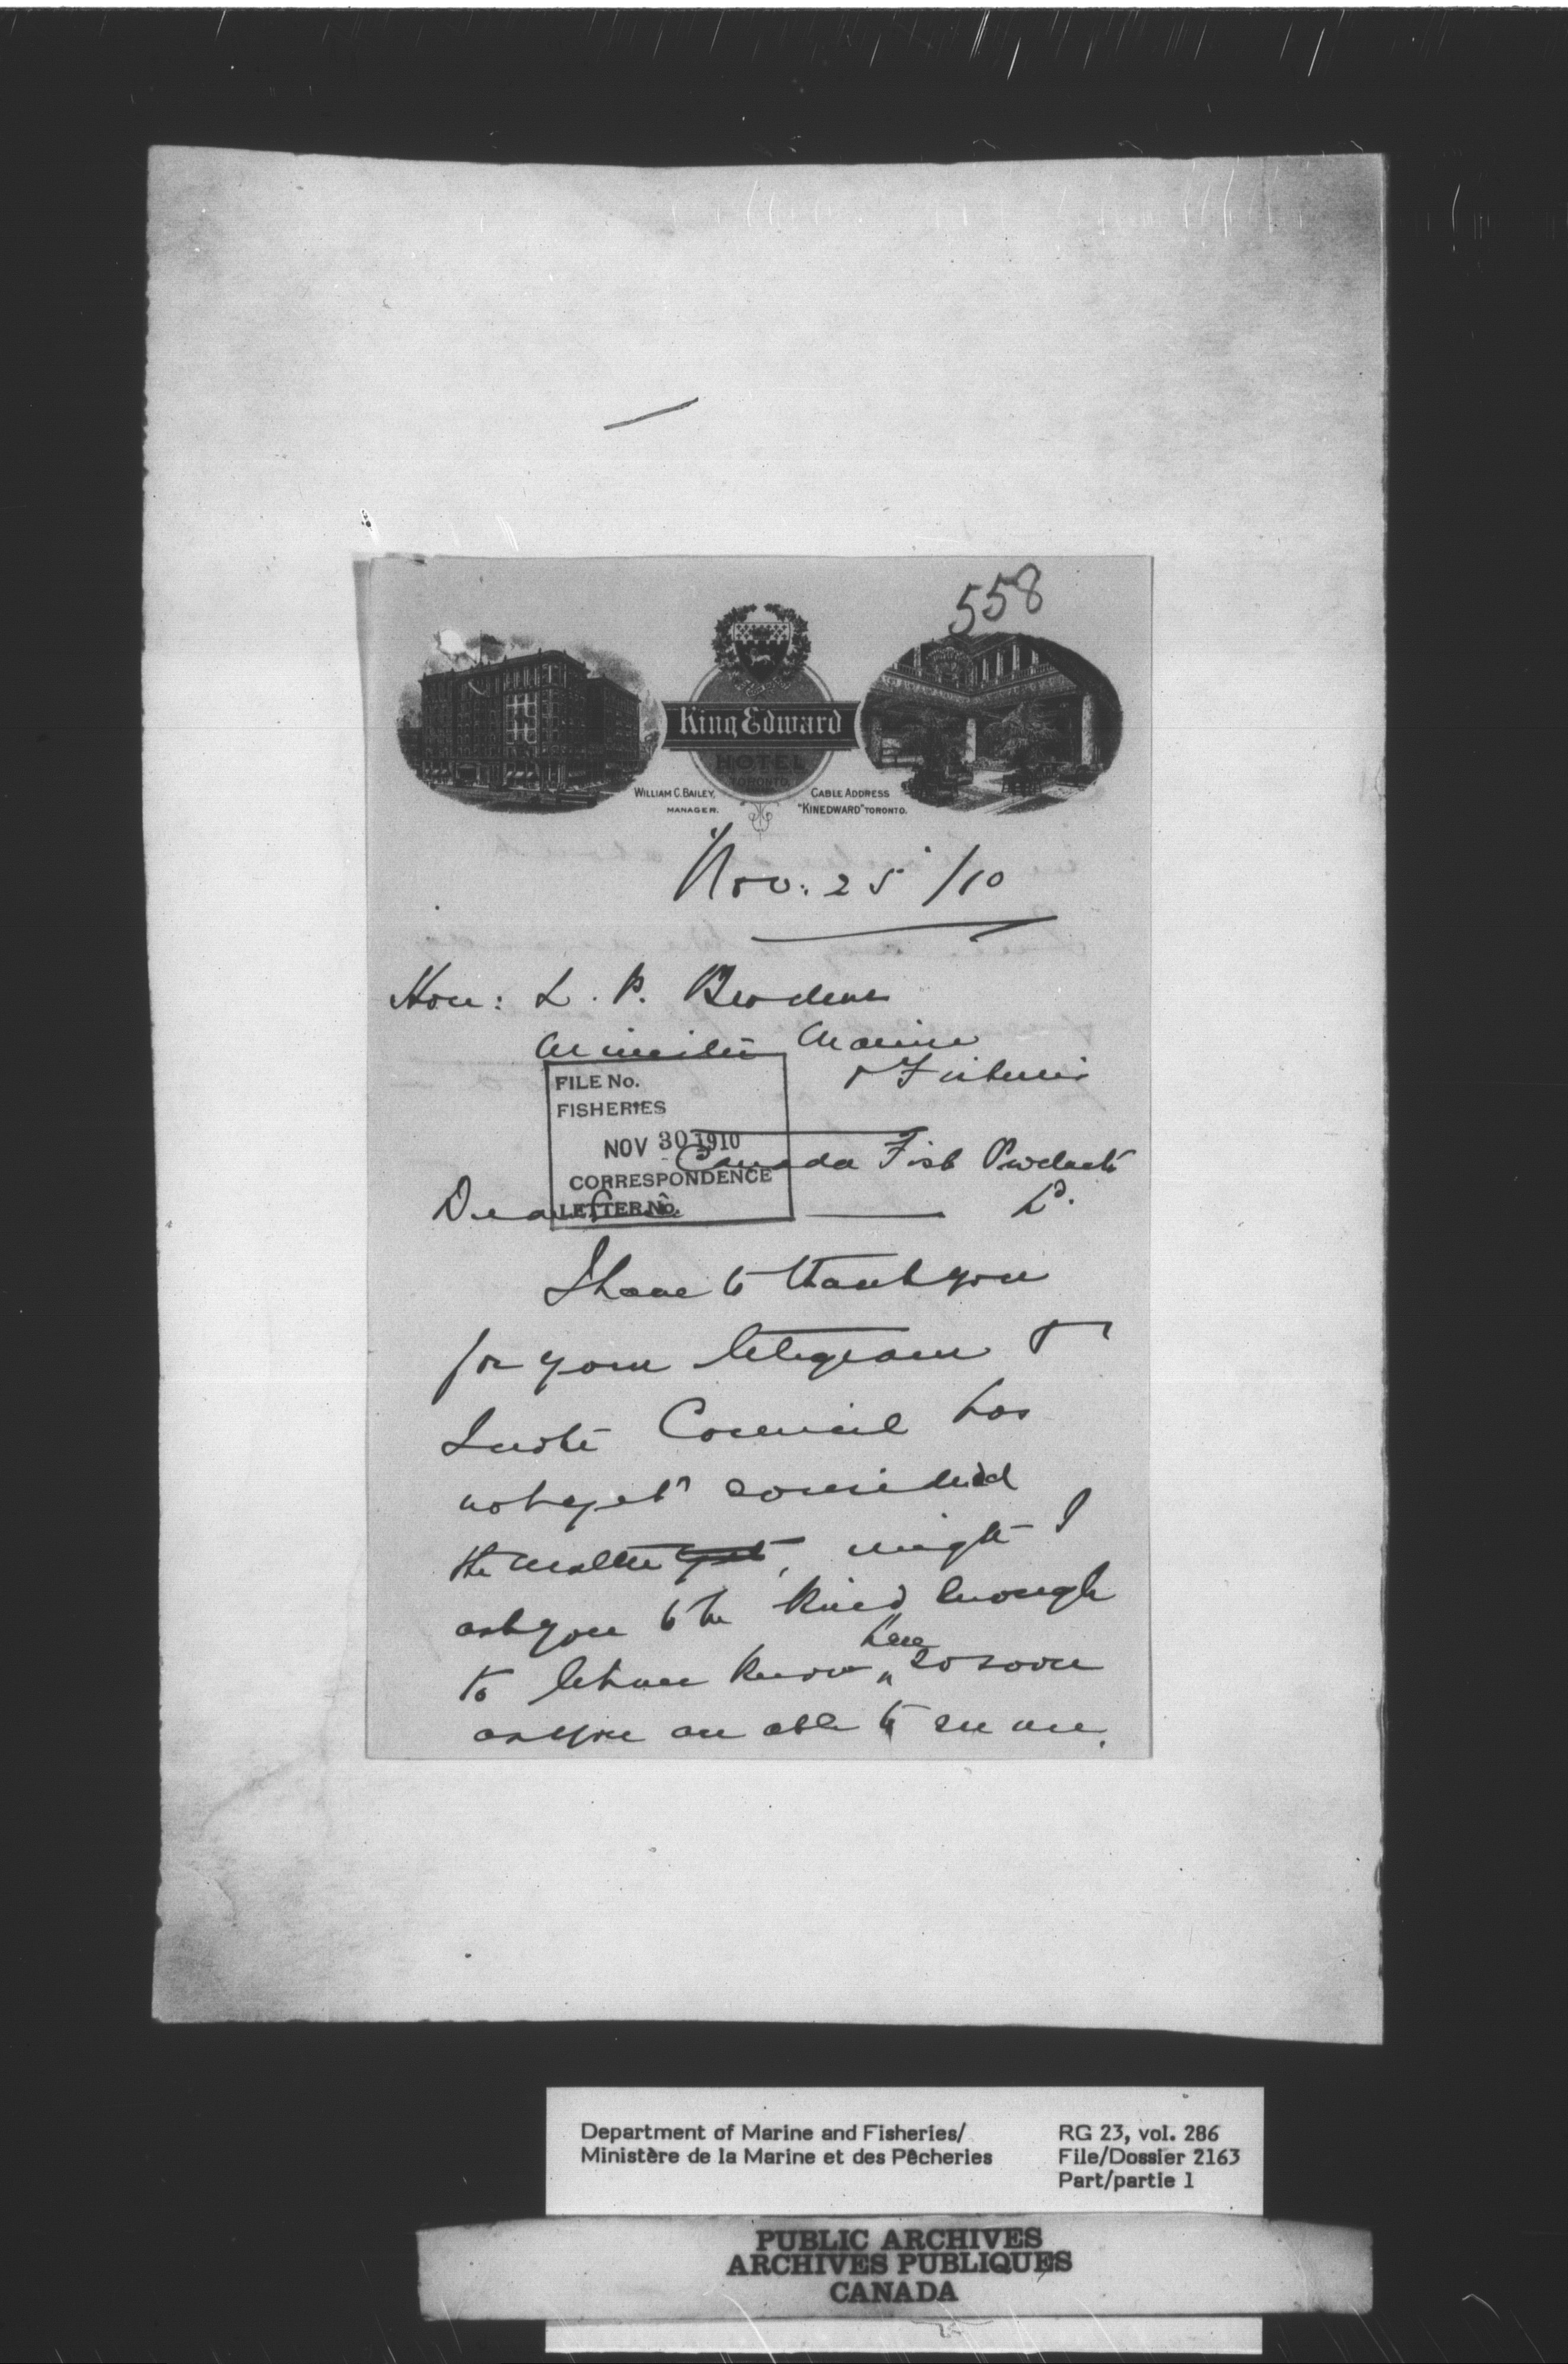 558
King Edward
HOTEL
TORONTO.
WILLIAM C. BAILEY, MANAGER.
CABLE ADDRESS "KINEDWARD" TORONTO.
Nov: 25 /10
Hon: L. P. Brodeur
Minister Marine
& Fisheries
FILE No.
FISHERIES
NOV 30 1910
CORRESPONDENCE
LETTER No.
Canada Fish Products
Ld.
Dear Sir
I have to thank you
for your telegram &
I note Council has
not yet considered
the matter yet, might I
ask you to be kind enough
to let me know here so soon
as you are able to see me.
Department of Marine and Fisheries/
Ministère de la Marine et des Pêcheries
RG 23, vol. 286
File/Dossier 2163
Part/partie 1
PUBLIC ARCHIVES
ARCHIVES PUBLIQUES
CANADA